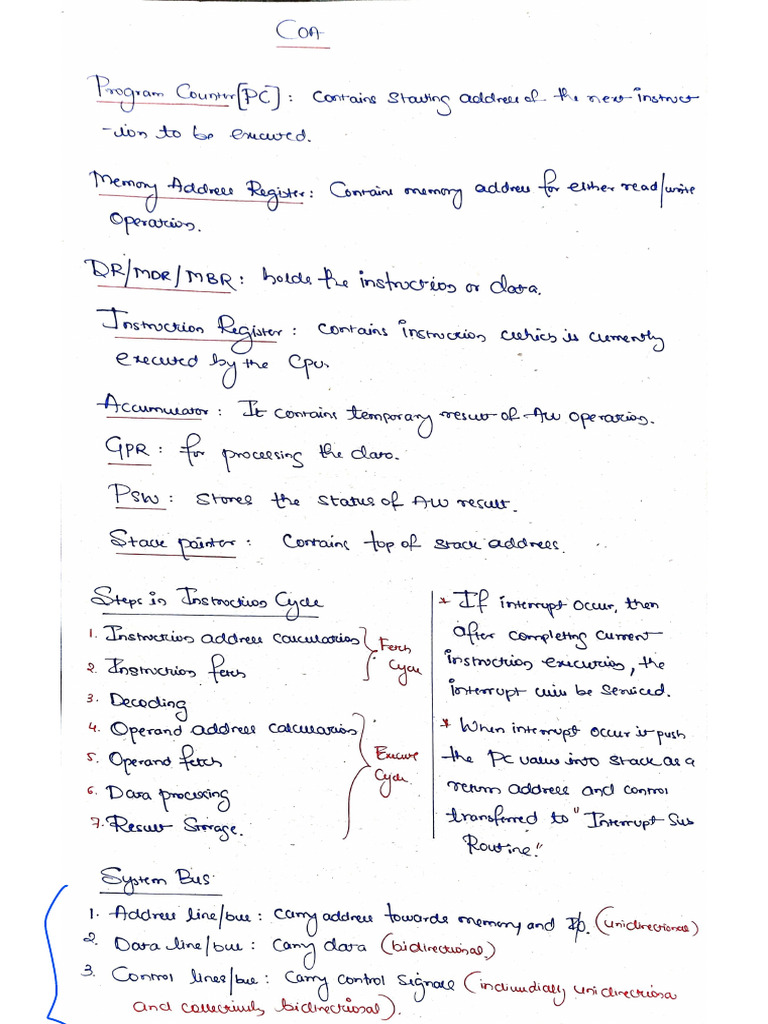 COA
Program Counter [PC] : Contains starting address of the next instruct
-ion to be executed.
Memory Address Register : Contains memory address for either read/write
Operation.
DR/MDR/MBR : holds the instruction or data.
Instruction Register : contains instruction which is currently
executed by the CPU.
Accumulator : It contains temporary result of ALU operation.
GPR : for processing the data.
PSW : stores the status of ALU result.
Stack pointer : Contains top of stack address.
Steps in Instruction Cycle
1. Instruction address calculation
2. Instruction fetch
Fetch
Cycle
3. Decoding
4. Operand address calculation
5. Operand fetch
6. Data processing
7. Result Storage.
Execute
Cycle
* If interrupt occur, then
after completing current
instruction execution, the
interrupt will be serviced.
* When interrupt occur it push
the PC value into stack as a
return address and control
transferred to "Interrupt Sub
Routine."
System Bus
1. Address line/bus : carry address towards memory and I/O. (unidirectional)
2. Data line/bus : carry data (bidirectional.)
3. Control lines/bus : carry control signals (individually unidirectional
and collectively bidirectional).